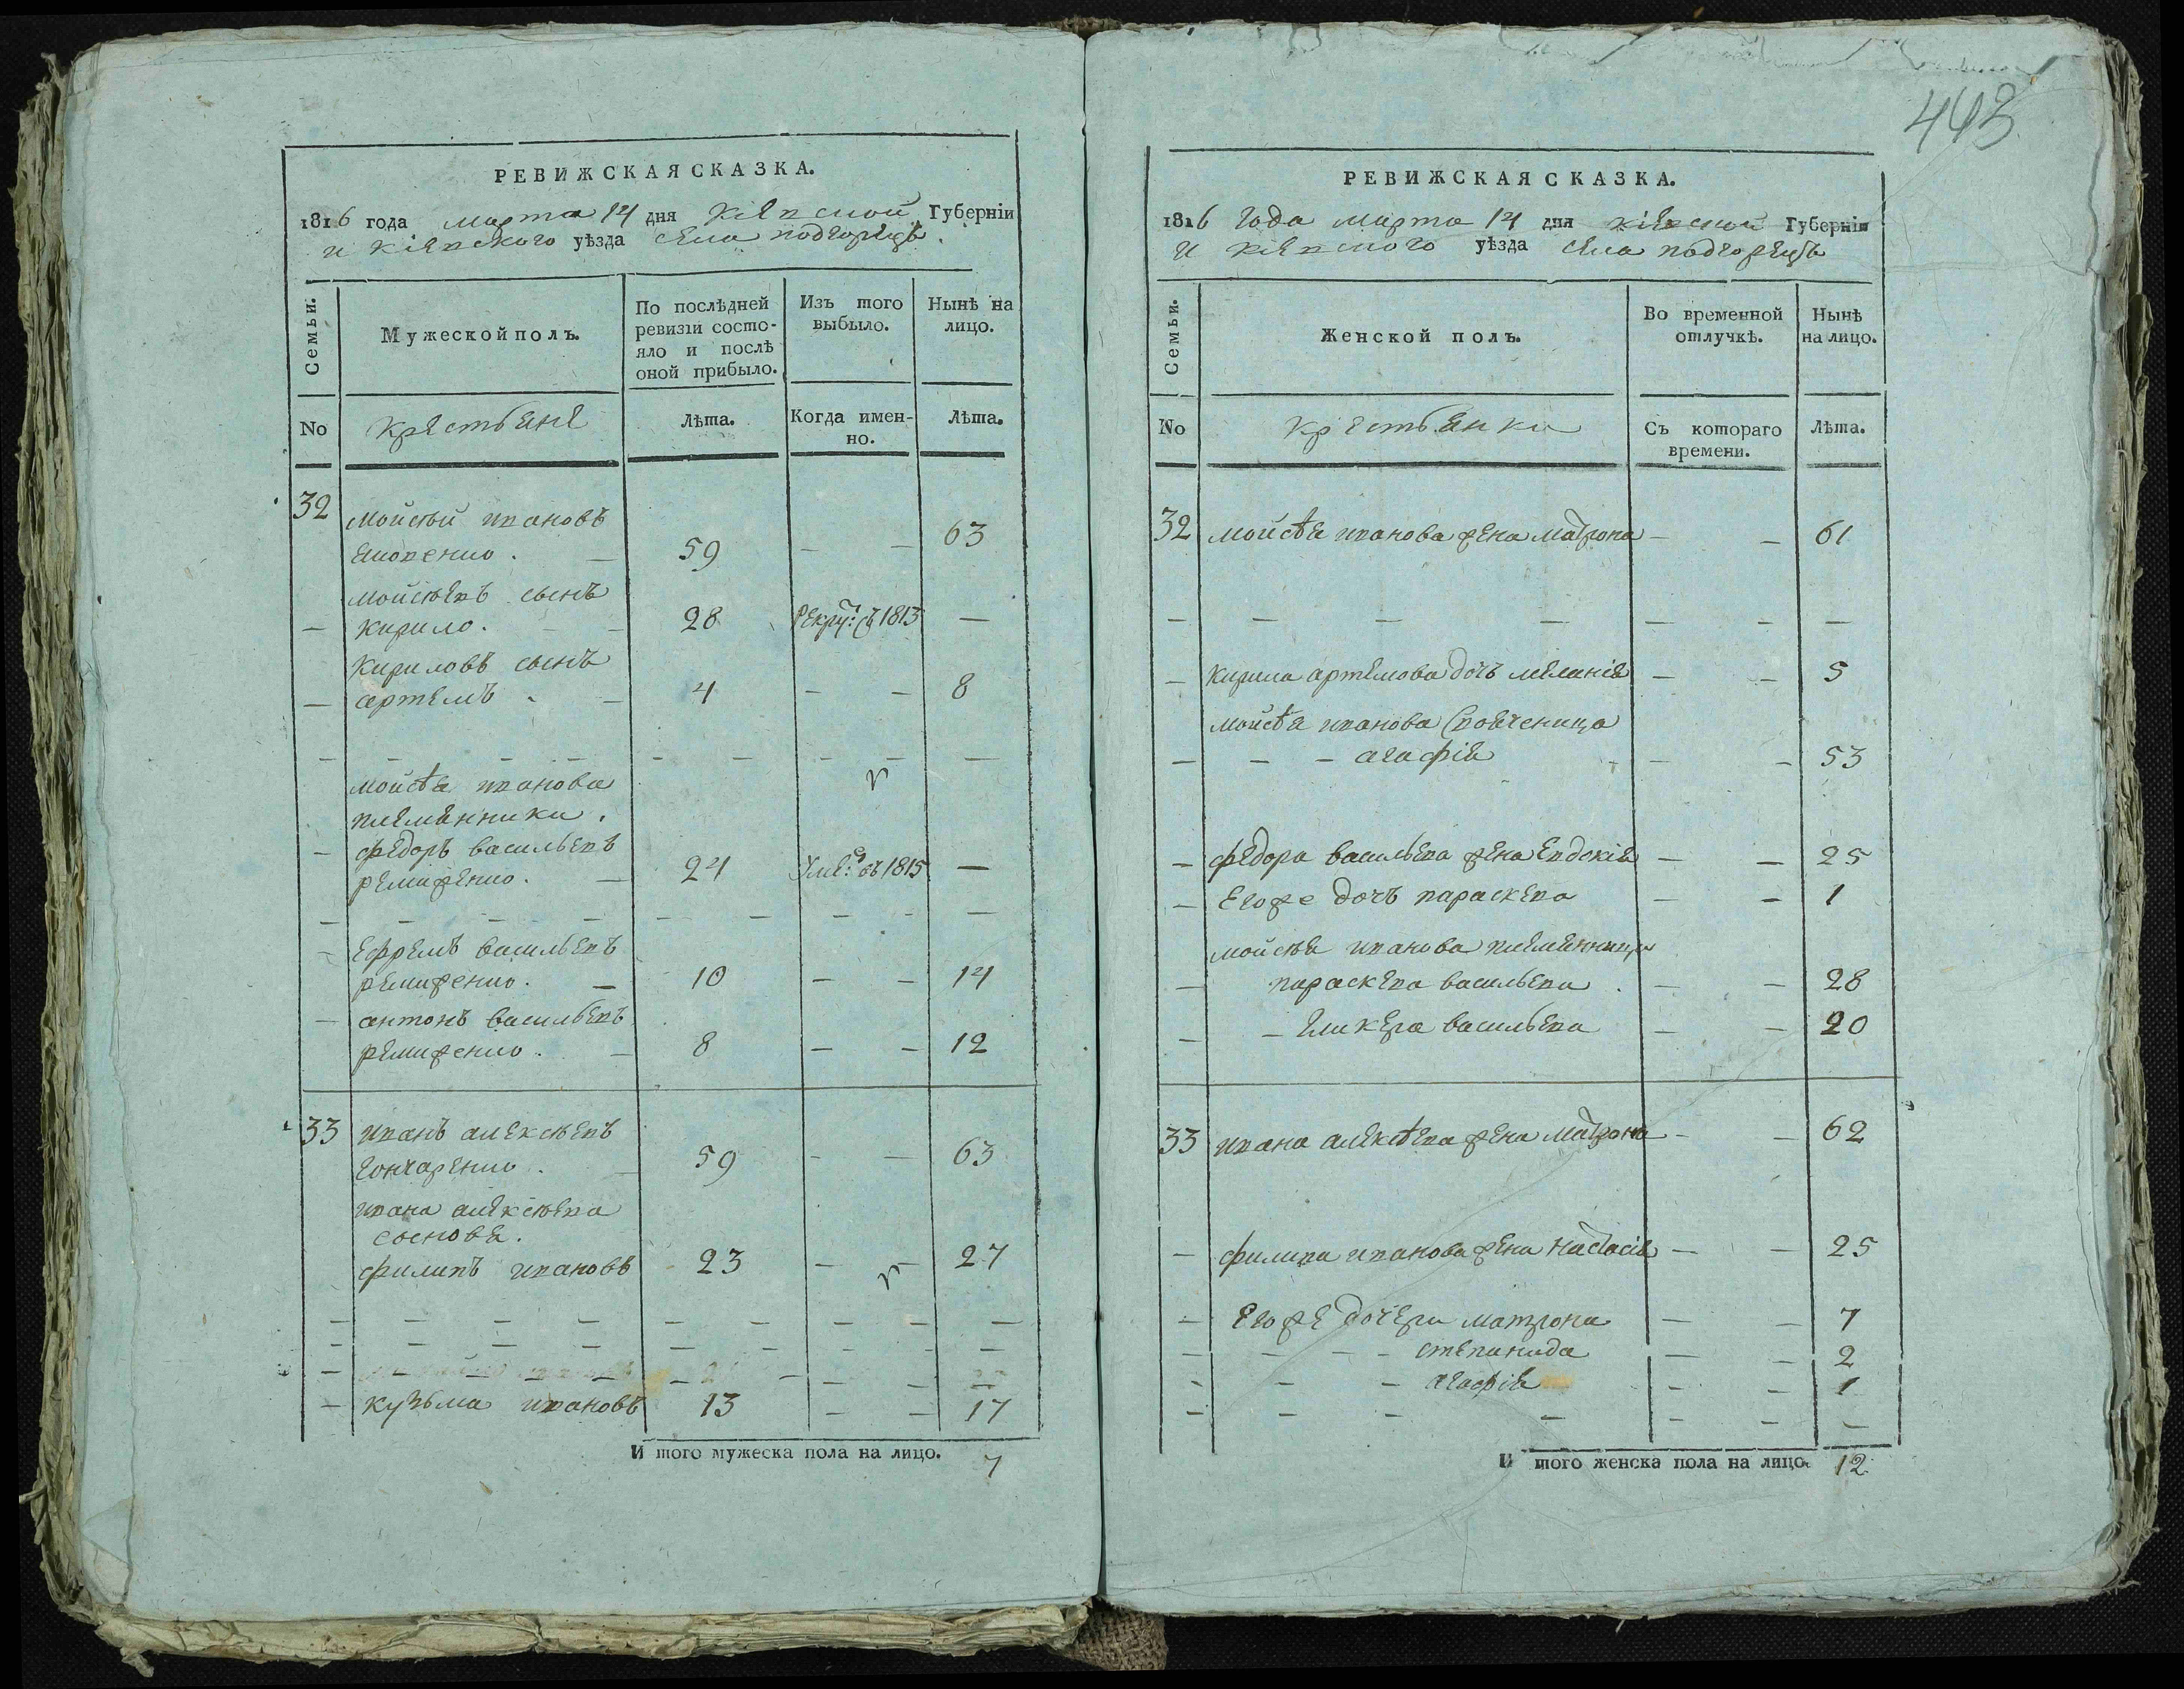 443
РЕВИЖСКАЯ СКАЗКА.
1816 года марта 14 дня кіевской Губерніи
и кіевского уѣзда села подгорецъ.
Семьи.
Мужеской полъ.
По послѣдней ревизіи состояло и послѣ оной прибыло.
Изъ того выбыло.
Нынѣ на лицо.
No
крестьяне
Лѣта.
Когда именно.
Лѣта.
32 мойсей ивановъ
59 — — 63
мойсѣевъ сынъ
— кирило. — — 28 рекру: въ 1813 —
кириловъ сынъ
— артемъ. — 4 — — 8
— — — — — — — — —
мойсѣя иванова
племянники.
— федоръ васильевъ
24 Умер: въ 1815 —
— — — — — — — — —
— ефремъ васильевъ
10 — — 14
— антонъ васильевъ
8 — — 12
33 иванъ алексѣевъ
гончаренко. — 59 — — 63
ивана алексѣева
сыновя.
филипъ ивановъ 23 — — 27
— — — — — — — — —
— — — — — — — — —
— кузьма ивановъ 13 — — 17
И того мужеска пола на лицо. 7
РЕВИЖСКАЯ СКАЗКА.
1816 года марта 14 дня кіевской Губерніи
и кіевского уѣзда села подгорецъ
Семьи.
Женской полъ.
Во временной отлучкѣ.
Нынѣ на лицо.
No
крестьянки
Съ котораго времени.
Лѣта.
32 мойсѣя иванова жена матрона — — 61
— — — — — — —
— кирила артемова дочь меланія — — 5
мойсѣя иванова
— — — агафія — — 53
— федора васильева жена евдокія — — 25
— Егоже дочь параскева — — 1
мойсѣя иванова племянницы
— параскева васильева. — — 28
— — гликера васильева — — 20
33 ивана алексѣева жена матрона — — 62
— филипа иванова жена настасія — — 25
— Егоже дочери матрона — — 7
— — — — степанида — — 2
— — — агафія — — 1
— — — — — — —
И того женска пола на лицо. 12